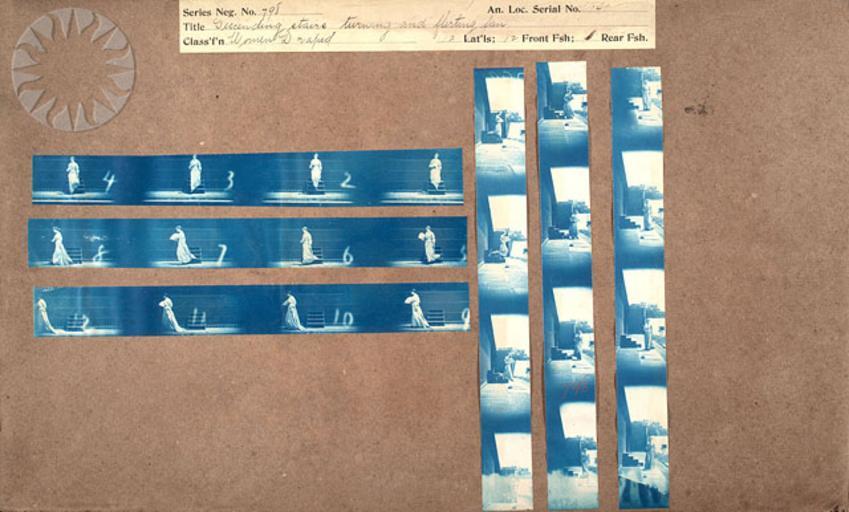 Series Neg. No. 798 An. Loc. Serial No.
Title Descending stairs turning and flirting fan
Class'f'n Women Draped 12 Lat'ls; 12 Front Fsh; Rear Fsh.
4 3 2
8 7 6 5
12 11 10 9
798